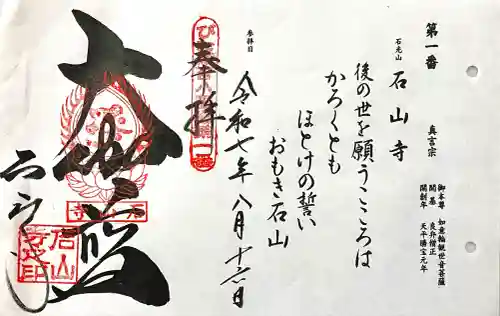 第一番
真言宗
御本尊 如意輪観世音菩薩
開基 良弁僧正
開創年 天平勝宝元年
石光山
石山寺
後の世を願うこころは
かろくとも
ほとけの誓い
おもき石山
参拝日
令和七年八月十六日
奉拝
大伽藍
石山寺
石山寺印